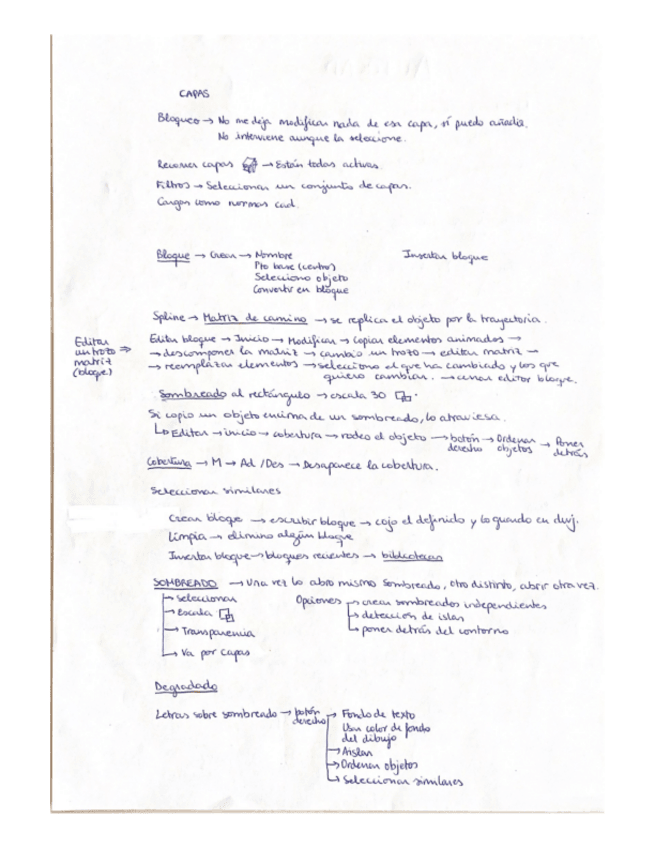 CAPAS
Bloqueo → No me deja modificar nada de esa capa, sí puedo añadir.
No interviene aunque la seleccione.
Recorrer capas → Están todas activas.
Filtros → Seleccionar un conjunto de capas.
Cargar como normas cad.
Bloque → Crear → Nombre
Pto base (centro)
Selecciono objeto
Convertir en bloque
Insertar bloque
Spline → Matriz de camino → se replica el objeto por la trayectoria.
Editar un trozo matriz (bloque) ⇒
Editar bloque → Inicio → Modificar → copiar elementos animados →
→ descomponer la matriz → cambio un trozo → editar matriz →
→ reemplazar elementos → selecciono el que ha cambiado y los que
quiero cambiar. → cerrar editor bloque.
Sombreado al rectángulo → escala 30
Si copio un objeto encima de un sombreado, lo atraviesa.
↳ Editar → inicio → cobertura → rodeo el objeto → botón derecho → Ordenar objetos → Poner detrás
Cobertura → M → Ad / Des → Desaparece la cobertura.
Seleccionar similares
Crear bloque → escribir bloque → cojo el definido y lo guardo en dwg.
Limpia → elimino algún bloque
Insertar bloque → bloques recientes → bibliotecas
SOMBREADO → Una vez lo abro mismo sombreado, otro distinto, abrir otra vez.
→ seleccionar
→ Escala
→ Transparencia
→ Va por capas
Opciones → crear sombreados independientes
→ detección de islas
→ poner detrás del contorno
Degradado
Letras sobre sombreado → botón derecho → Fondo de texto
Usar color de fondo
del dibujo
→ Aislar
→ Ordenar objetos
→ Seleccionar similares